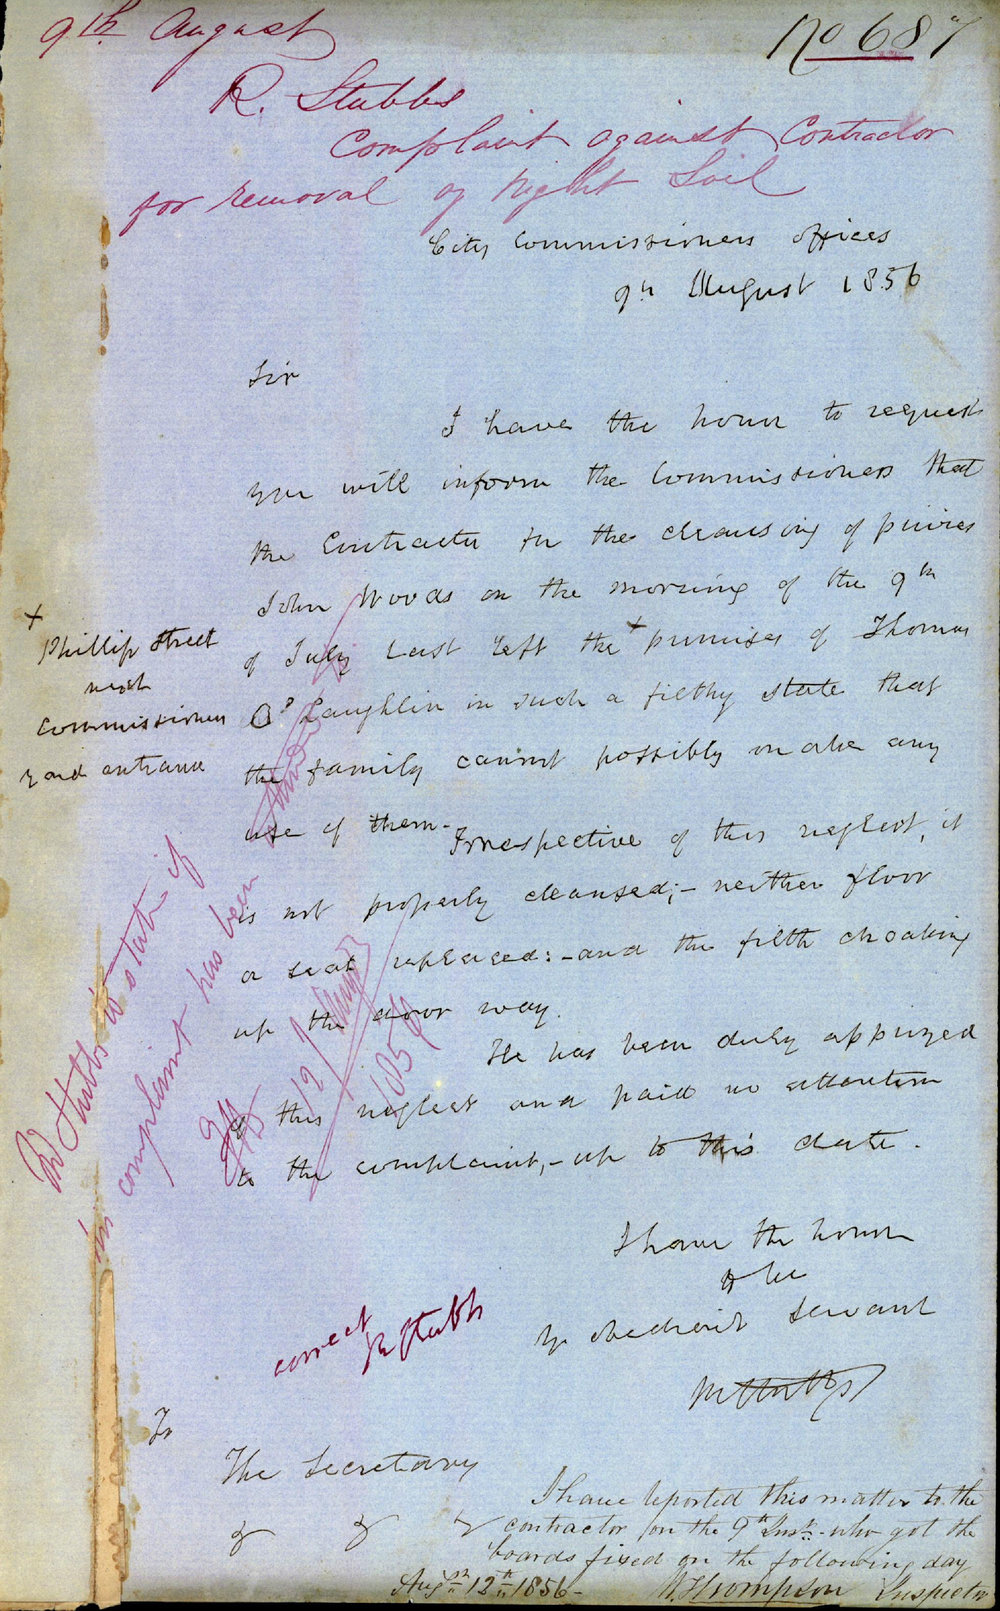 9th August
No 687
R. Stubbs
Complaint against Contractor
for removal of Night Soil
City Commissioners offices
9th August 1856
Sir
I have the honor to request
you will inform the Commissioners that
the Contractor for the cleansing of privies
John Woods on the morning of the 9th
of July last left the + premises of Thomas
O'Laughlin in such a filthy state that
the family cannot possibly make any
use of them.
Irrespective of this neglect, it
is not properly cleansed;- neither floor
or seat replaced:- and the filth choaking
up the door way.
He has been duly apprized
of this neglect and paid no attention
to the complaint,- up to this date.
I have the honor
to be
Yr obedient Servant
R Stubbs
To
The Secretary
+
Phillip Street
next
Commissioners
yard entrance
Mr Stubbs to state if
this complaint has been
12 Augt
1856
correct
R Stubbs
I have reported this matter to the
contractor on the 9th Inst. who got the
boards fixed on the following day
Augst 12th 1856-
W. Thompson Inspector